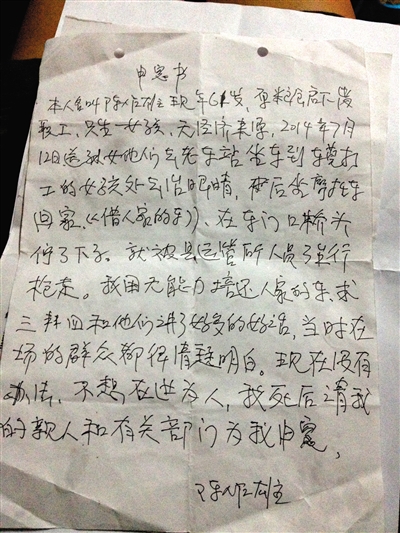 申冤书
本人名叫陈 雄 现年61岁，原粮食局下岗
职工，只生一女孩，无经济来源，2014年7月
12日送孙女她们去老车站坐车到 打
工的女孩处去治眼睛，然后坐摩托车
回家，《借人家的车》，在车门口桥头
停了下子。就被县运管所人员强行
抢走。我因无能力培还人家的车，求
三拜四和他们讲了好多的好话，当时在
场的群众都很清楚明白。现在没有
办法，不想在世为人，我死后请我
的亲人和有关部门为我申冤，
陈